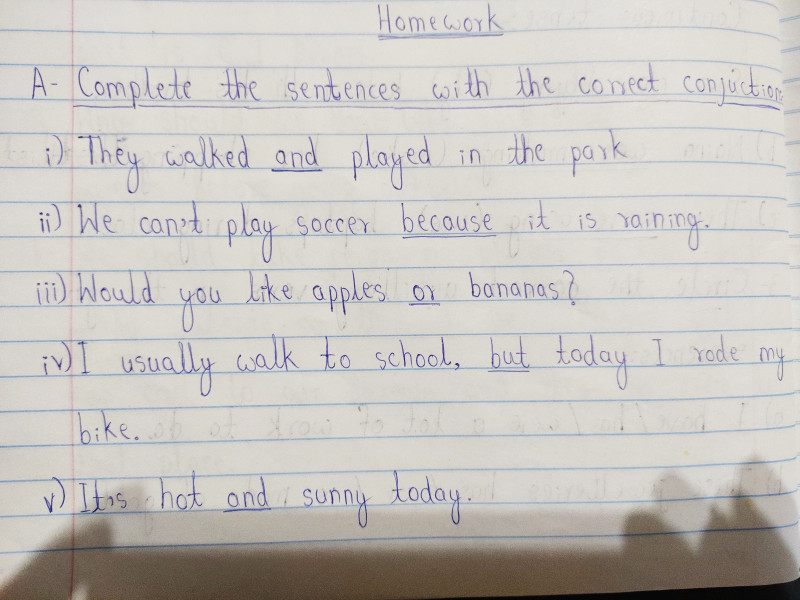 Homework
A- Complete the sentences with the correct conjuction
i) They walked and played in the park
ii) We can't play soccer because it is raining.
iii) Would you like apples or bananas?
iv) I usually walk to school, but today I rode my
bike.
v) It's hot and sunny today.